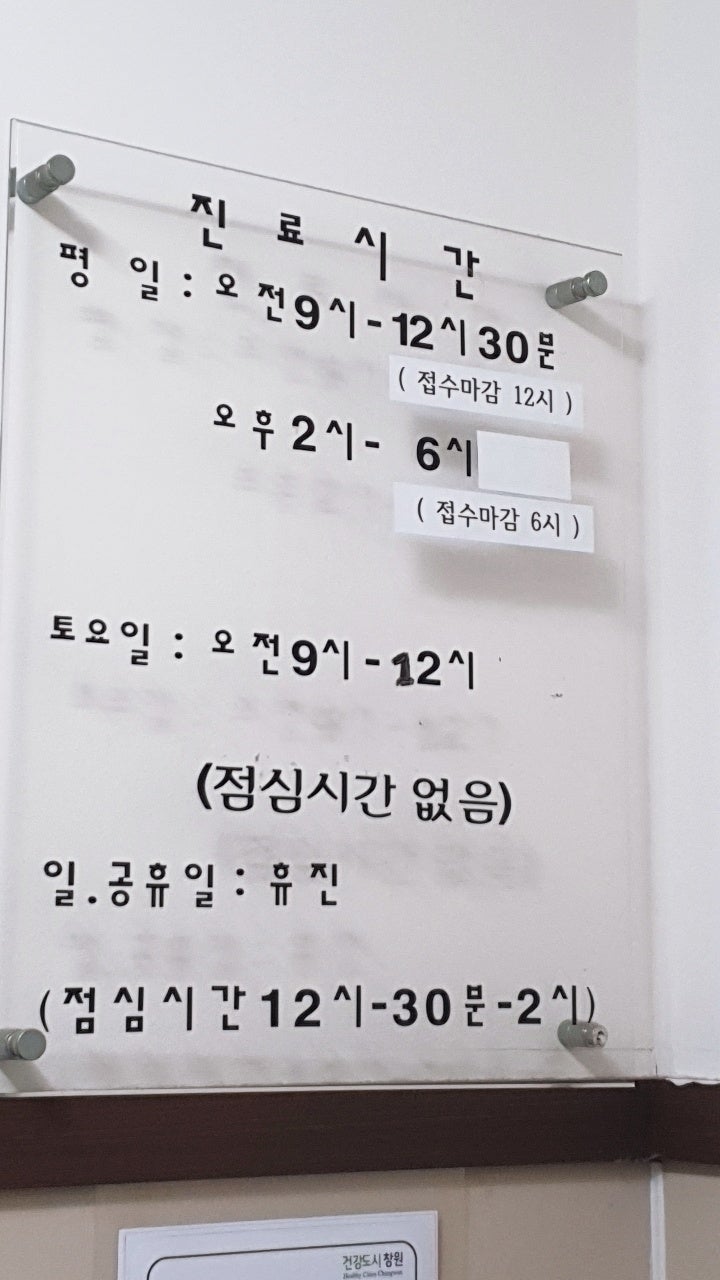 진료시간
평 일 : 오전9시-12시30분
( 접수마감 12시 )
오후2시- 6시
( 접수마감 6시 )
토요일 : 오전9시-12시
(점심시간 없음)
일.공휴일 : 휴진
(점심시간12시-30분-2시)
건강도시 창원
Healthy Cities Changwon